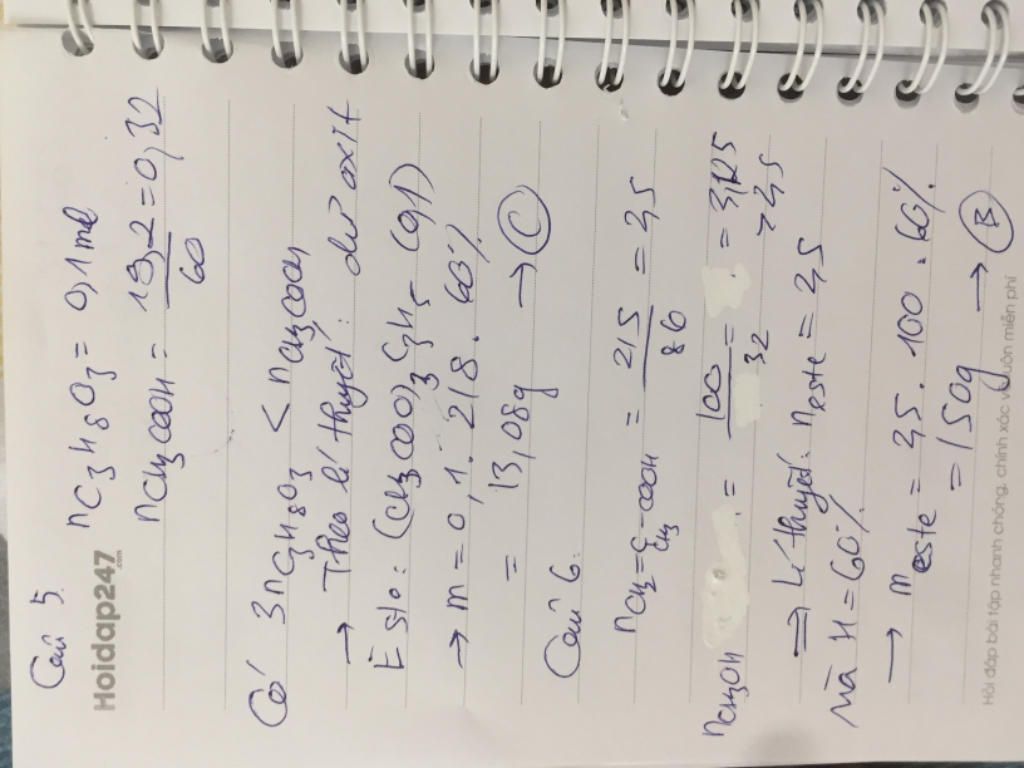 Câu 5.
Hoidap247.com
nC3H8O3 = 0,1 mol
nCH3COOH = 19,2/60 = 0,32
Có 3nC3H8O3 < nCH3COOH
→ Theo lí thuyết: dư axit
Este: (CH3COO)3C3H5 (0,1)
→ m = 0,1. 218. 60%
= 13,08g → C
Câu 6.
nCH2=C-COOH = 215/86 = 2,5
CH3
nCH3OH = 100/32 = 3,125
> 2,5
⇒ Lí thuyết: neste = 2,5
Mà H = 60%
→ meste = 2,5. 100. 60%.
= 150g → B
Hỏi đáp bài tập nhanh chóng, chính xác và luôn miễn phí